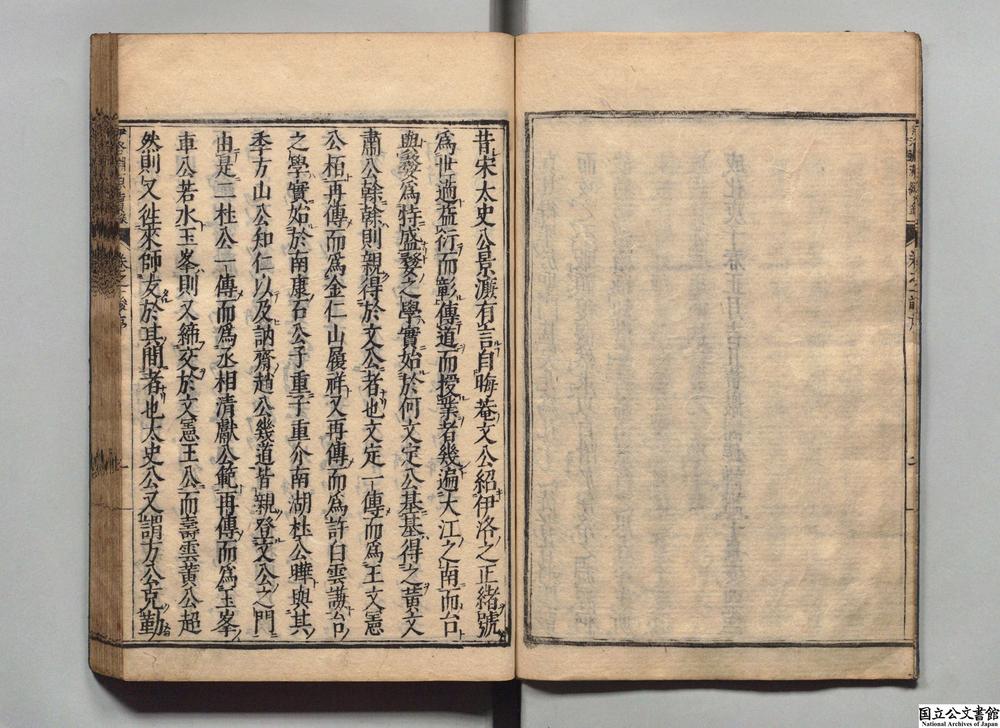 昔宋太史公景濂有言自晦菴文公紹伊洛之正緒號
爲世適益衍而彰傳道而授業者幾遍大江之南而台
與婺爲特盛婺之學實始於何文定公基基得之黄文
肅公榦榦則親得於文公者也文定一傳而爲王文憲
公栢再傳而爲金仁山履祥又再傳而爲許白雲謙台
之學實始於南康石公子重子重介南湖杜公曄與其
季方山公知仁以及訥齋趙公幾道皆親登文公之門
由是二杜公一傳而爲丞相清獻公範再傳而爲玉峯
車公若水玉峯則又締交於文憲王公而壽雲黄公超
然則又徃來師友於其間者也太史公又謂方公克勤
国立公文書館
National Archives of Japan